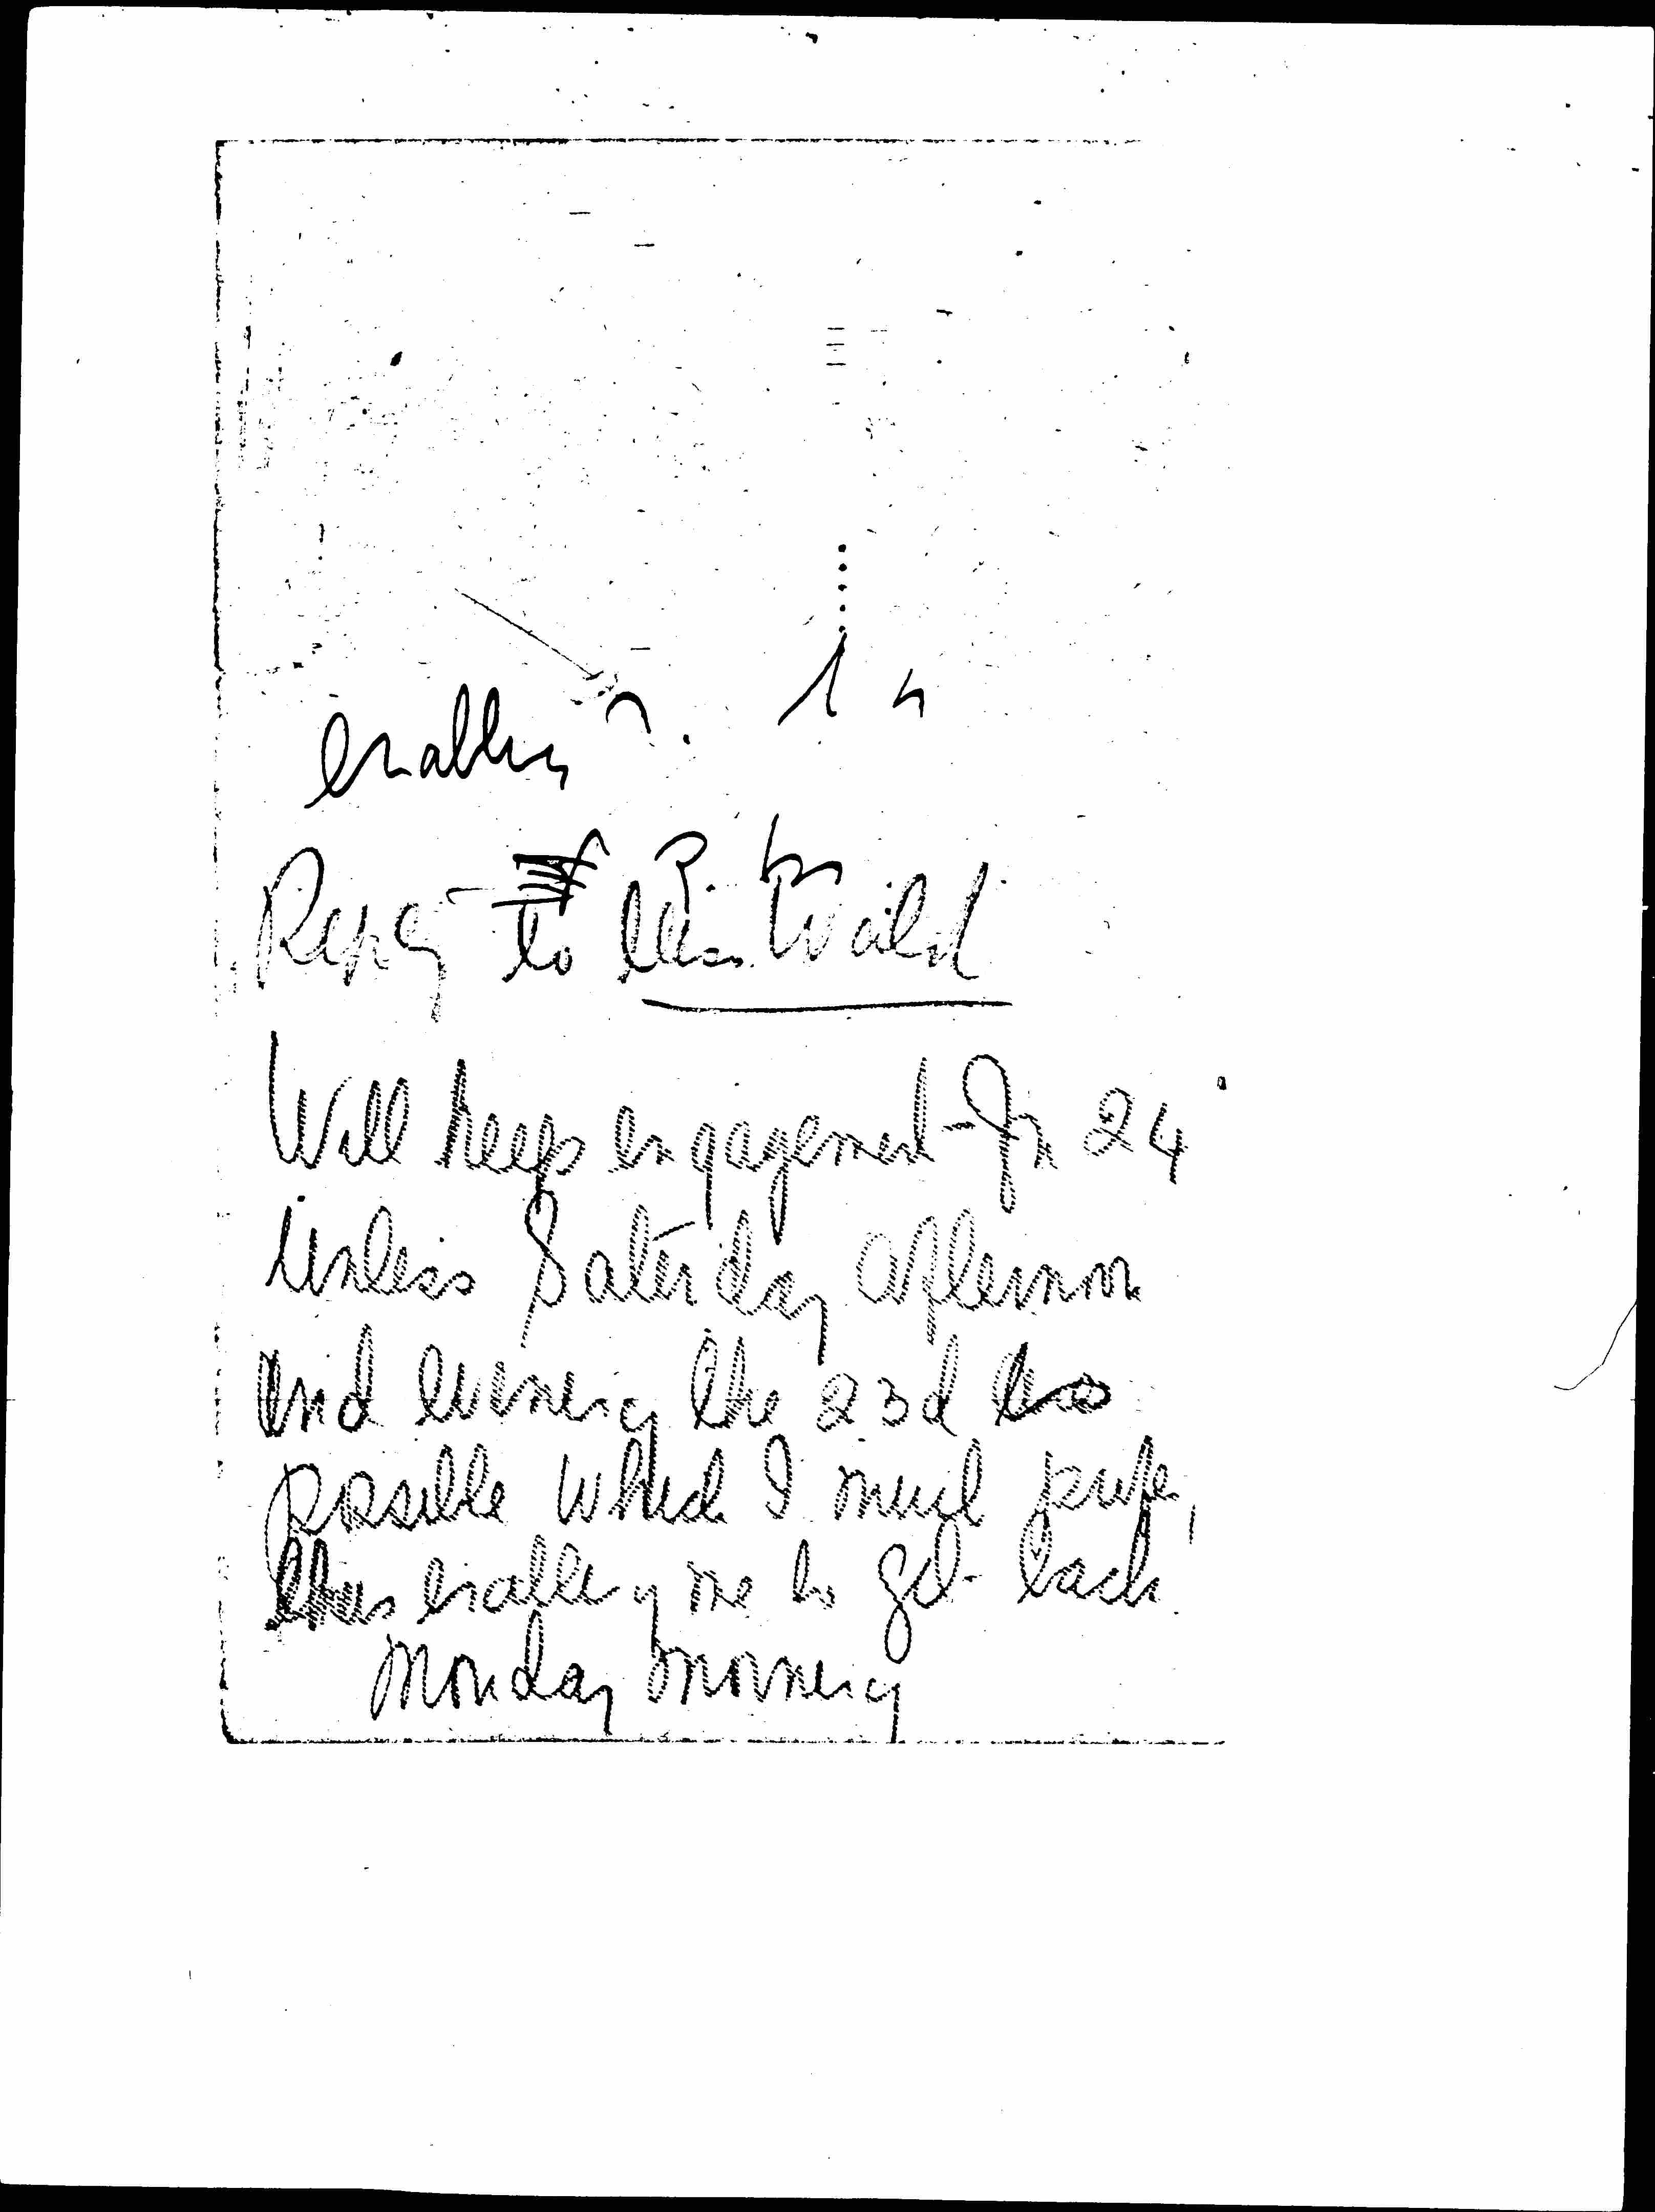 enabling
Reply to Miss Wald
Will keep engagement for 24
Unless Saturday afternoon
and evening the 23d
possible which I much prefer,
thus enabling me to get back
Monday morning